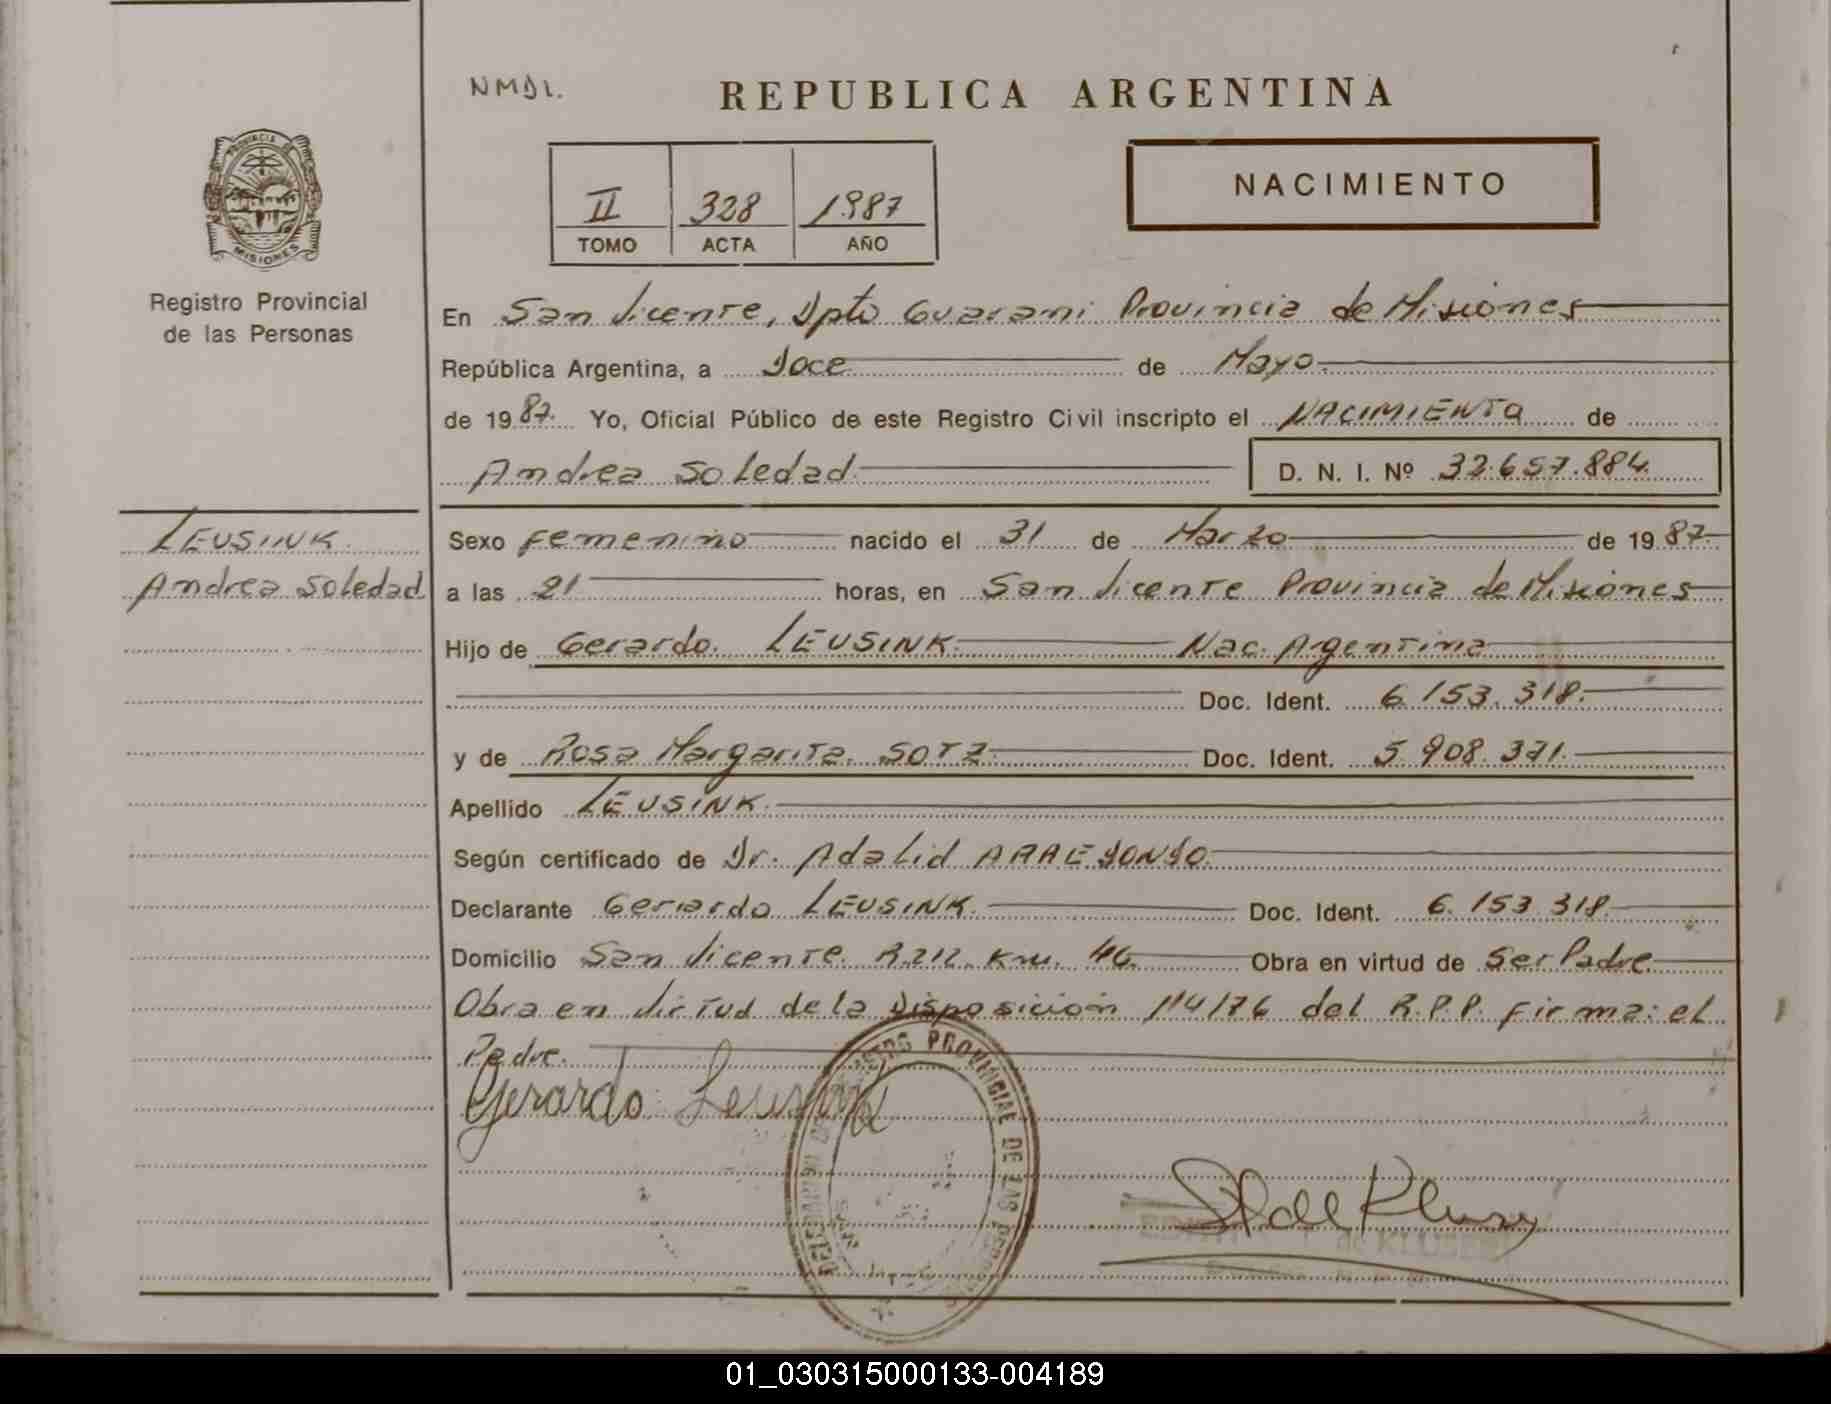 NMDL.
REPUBLICA ARGENTINA
II 328 1987
TOMO ACTA AÑO
NACIMIENTO
PROVINCIA DE
MISIONES
Registro Provincial
de las Personas
En San Vicente, Dpto Guarani Provincia de Misiones
República Argentina, a Doce de Mayo
de 1987. Yo, Oficial Público de este Registro Civil inscripto el NACIMIENTO de
Andrea Soledad D. N. I. Nº 32.657.884.
LEUSINK
Andrea Soledad
Sexo Femenino nacido el 31 de Marzo de 1987.
a las 21 horas, en San Vicente Provincia de Misiones
Hijo de Gerardo. LEUSINK. Nac. Argentina
Doc. Ident. 6.153.318.
y de Rosa Margarita. SOTZ Doc. Ident. 5.908.371.
Apellido LEUSINK.
Según certificado de Dr. Adalid ARREDONDO.
Declarante Gerardo LEUSINK. Doc. Ident. 6.153.318.
Domicilio San Vicente. R.212. Km. 46. Obra en virtud de Ser Padre.
Obra en Virtud de la Disposición 114/76 del R.P.P. Firma: el
Padre.
Gerardo Leusink
REGISTRO PROVINCIAL DE LAS PERSONAS
de KLUSE
01_030315000133-004189